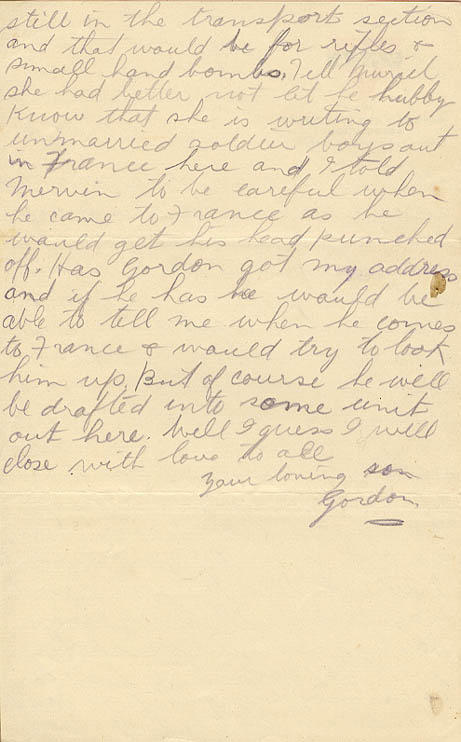 still in the transport section
and that would be for rifles &
small hand bombs. Tell Muriel
she had better not let he hubby
know that she is writing to
unmarried soldier boys out
in France here and I told
Mervin to be careful when
he came to France as he
would get his head punched
off. Has Gordon got my address
and if he has he would be
able to tell me when he comes
to France & would try to look
him up, But of course he will
be drafted into some unit
out here. Well I guess I will
close with love to all
Your loving son
Gordon.